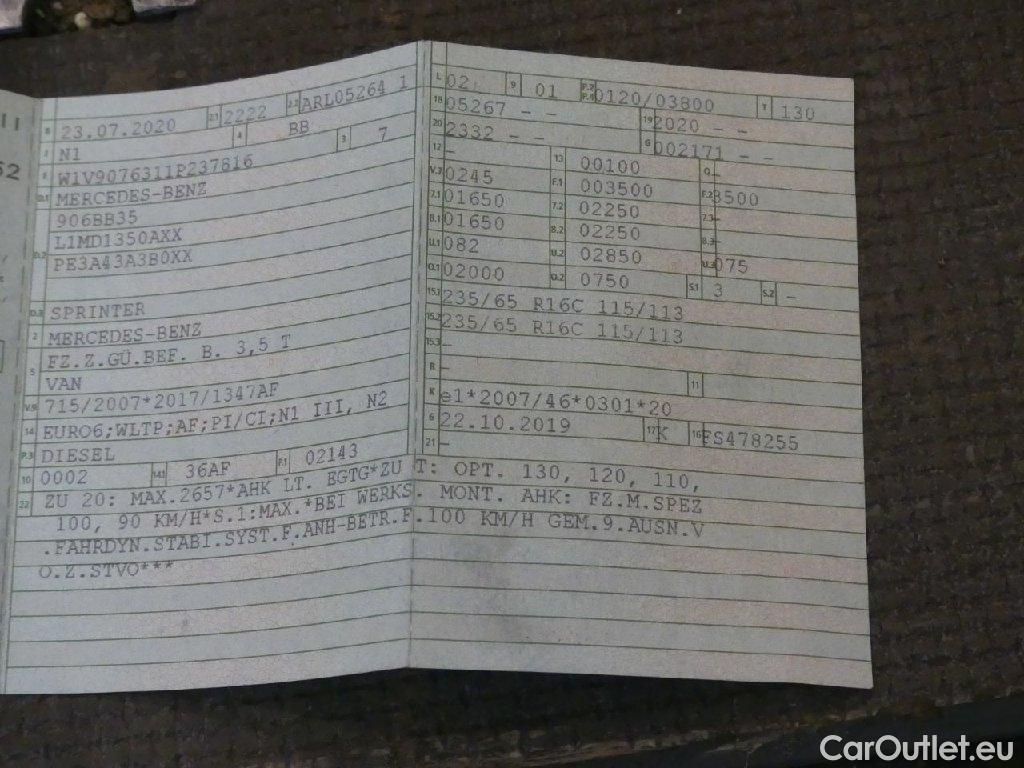 II
52
B 23.07.2020 2.1 2222 2.2 ARL05264 1
J N1 4 BB 3 7
E W1V9076311P237816
D.1 MERCEDES-BENZ
906BB35
L1MD1350AXX
D.2 PE3A43A3B0XX
D.3 SPRINTER
2 MERCEDES-BENZ
5 FZ.Z.GÜ.BEF. B. 3,5 T
VAN
V.9 715/2007*2017/1347AF
14 EURO6;WLTP;AF;PI/CI;N1 III, N2
P.3 DIESEL
10 0002 14.1 36AF P.1 02143
L 02 9 01 P.2 P.4 0120/03800 T 130
18 05267 - - 19 2020 - -
20 2332 - - G 002171 - -
12 - 13 00100 Q -
V.7 0245 F.1 003500 F.2 3500
7.1 01650 7.2 02250 7.3 -
8.1 01650 8.2 02250 8.3 -
U.1 082 U.2 02850 U.3 075
O.1 02000 O.2 0750 S.1 3 S.2 -
15.1 235/65 R16C 115/113
15.2 235/65 R16C 115/113
15.3 -
R - 11
K e1*2007/46*0301*20
6 22.10.2019 17 K 16 FS478255
21 -
22 ZU 20: MAX.2657*AHK LT. EGTG*ZU T: OPT. 130, 120, 110,
100, 90 KM/H*S.1:MAX.*BEI WERKS. MONT. AHK: FZ.M.SPEZ
.FAHRDYN.STABI.SYST.F.ANH-BETR.F.100 KM/H GEM.9.AUSN.V
O.Z.STVO***
CarOutlet.eu